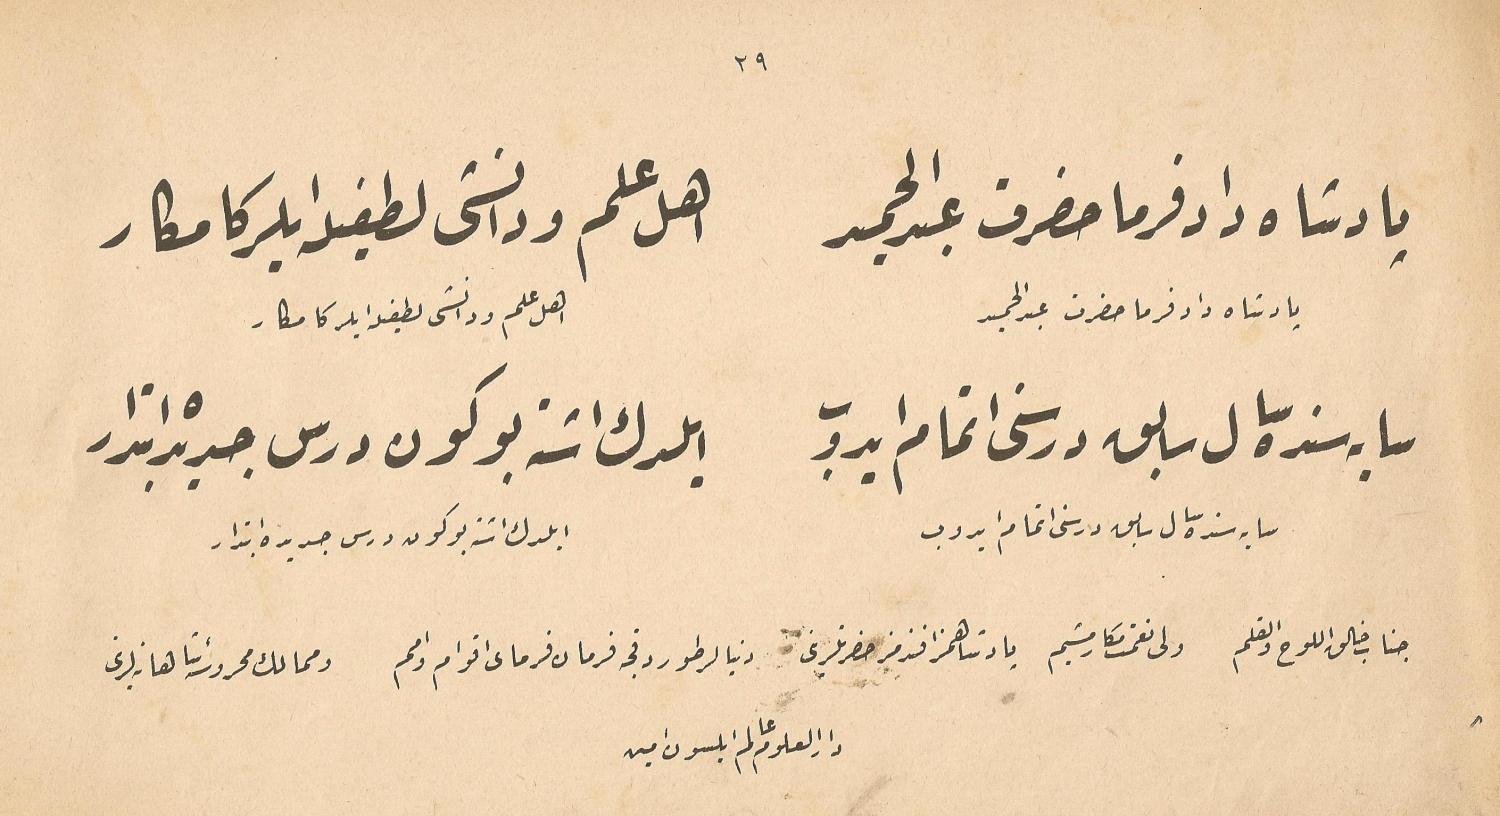 ٢٩
پادشاه دادفرما حضرت عبدالحمید اهل علم و دانشی لطفیله ایلر کامکار
پادشاه دادفرما حضرت عبدالحمید اهل علم و دانشی لطفیله ایلر کامکار
سایه سنده سال سابق درسنی اتمام ایدوب ایلدك اشته بو كون درس جدیده ابتدار
سایه سنده سال سابق درسنی اتمام ایدوب ایلدك اشته بو كون درس جدیده ابتدار
جناب خالق اللوح والقلم ولی نعمت پادشاهمز افندمز حضرتلرینی دنیالر طوردقجه فرمان فرمای اقوام وامم وممالك محروسۀ شاهانه لرینی
دارالعلوم عالم ایلسون امین